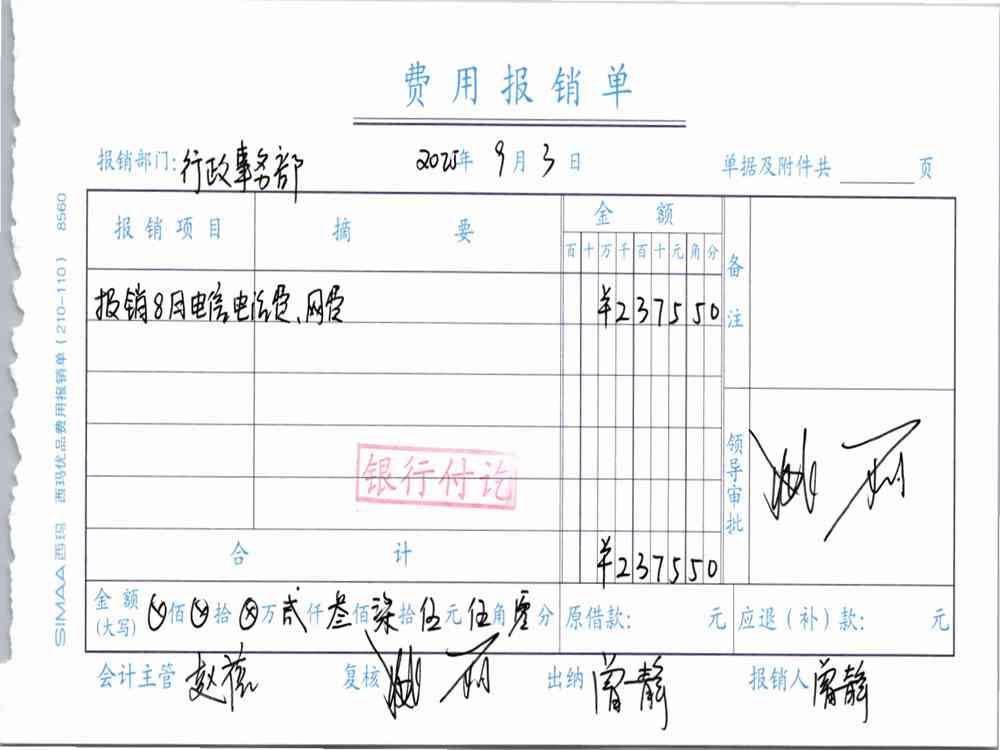 费用报销单
报销部门:行政事务部 2025年9月3日 单据及附件共 页
报销项目 摘要 金额 备注
百十万千百十元角分
报销8月电信电话费、网费 ¥237550
银行付讫
领导审批
合计 ¥237550
金额(大写) ⊗佰⊗拾⊗万贰仟叁佰柒拾伍元伍角零分 原借款: 元 应退(补)款: 元
会计主管 复核 出纳 曾静 报销人 曾静
SIMAA西玛 西玛优品费用报销单(210-110) 8560